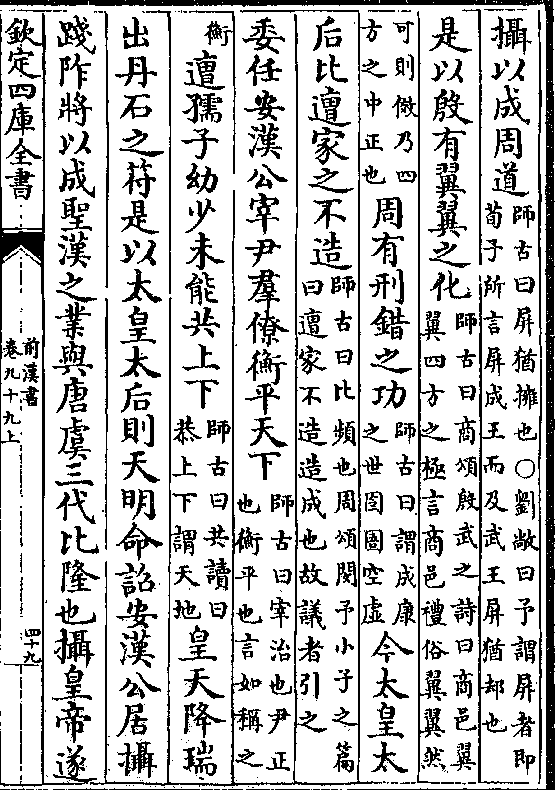 攝以成周道師古曰屏猶擁也○劉敞曰予謂屏者即荀子所言屏成王而及武王屏猶却也
是以殷有翼翼之化師古曰商頌殷武之詩曰商邑翼翼四方之極言商邑禮俗翼翼然
可則倣乃四方之中正也周有刑錯之功師古曰謂成康之世囹圄空虛今太皇太
后比遭家之不造師古曰比頻也周頌閔予小子之篇曰遭家不造造成也故議者引之
委任安漢公宰尹羣僚衡平天下師古曰宰治也尹正也衡平也言如稱之
衡遭孺子幼少未能共上下師古曰共讀曰恭上下謂天地皇天降瑞
出丹石之符是以太皇太后則天明命詔安漢公居攝
踐阼將以成聖漢之業與唐虞三代比隆也攝皇帝遂
欽定四庫全書
前漢書
卷九十九上
四十九